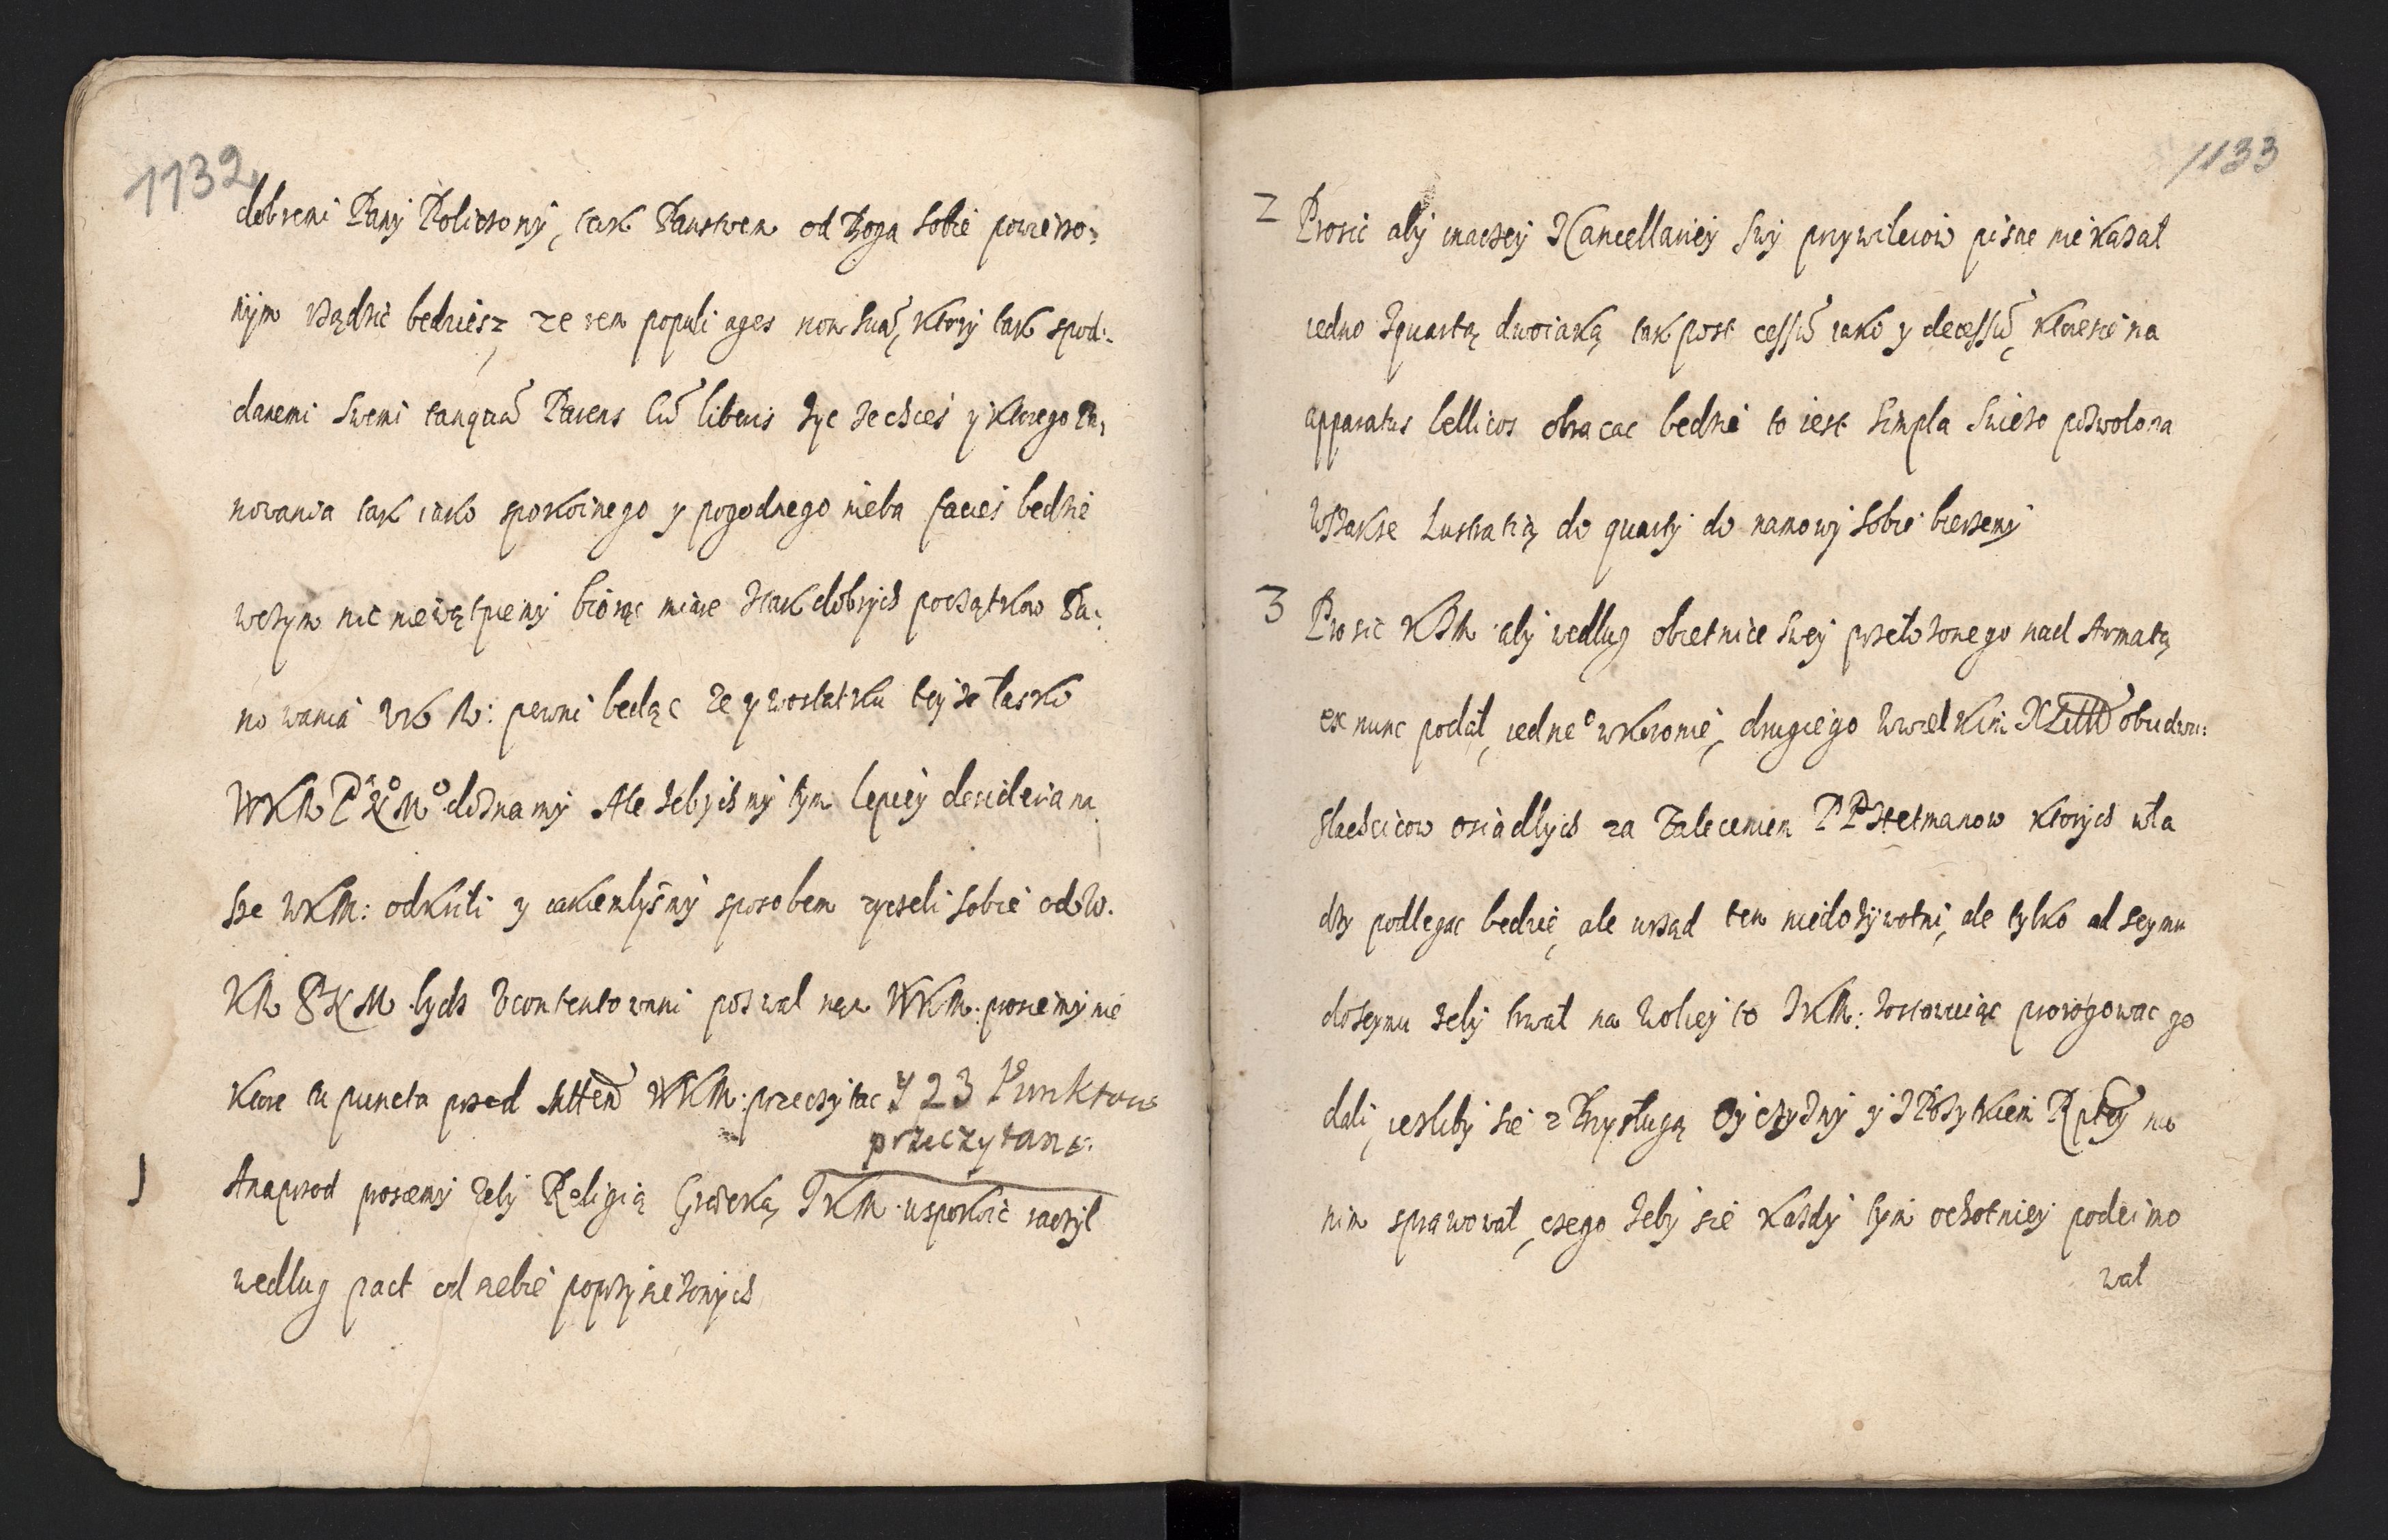 1132
dobremi Pany Policzony, tak Panstwem od Boga sobie powierzo:
nym rządzić bedziesz ze rem populi ages non tuã, który tak spod:
danemi swemi tanquã Parens cũ liberis życ zechcesz y ktorego Pa,
nowania tak iako spokoinego y pogodnego nieba facies bedzie
wczym nic niewątpiemy biorąc miare z tak dobrych początkow Pa:
nowania WKM: pewni bedąc ze y wostatku teyże łasko
WKM P. N. M. doznamy Ale żebyismy tym lepiey desideria na
sze WKM: odkrili y iakiemlysmy sposobem życzeli sobie od W.
KM P N M. bydz Ucontentowani pozwal nąm WKM. prosiemy nie
ktore te puncta przed Mttem WKM: przeczytac y 23 Punktow
przeczytano.
1 Anaprzod prosiemy zeby Religią Grecką JKM. uspokoic raczył
według pact od siebie poprzysiezonych
1133
2 Prosic aby inaczey Kancellariey swy przywileiow pisac nie kazał
iedno z quartą dwoiaką tak post cessũ iako y decessũ, ktorescie na
apparatus bellicos obracac bedzie to iest simpla swiezo pozwolona
Wszakze Lustratią do quarty do namowy sobie bierzemy
3 Prosic KJM aby według obietnice swey przełozonego nad Armatą
ex nunc podał, iedne° wkoronie, drugiego Wwielkim X Litt obudwu:
slachcicow osiadłych za Zaleceniem PP Hetmanow ktorych wła
dzy podlegac bedzie, ale urząd ten niedożywotni, ale tylko od seymu
doseymu zeby trwał na Woliey to JKM: zostawuiąc prorogowac go
dali, iesliby sie z Przysługą Oyczyzny y z Pozytkiem Rptey na
nim sprawował, czego żeby sie każdy tym ochotniey podeimo
wał